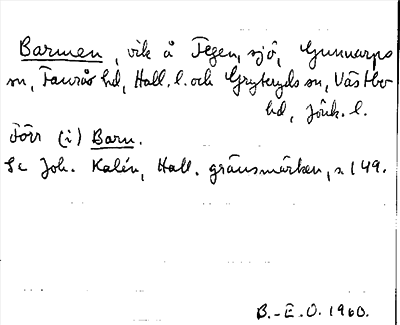 Barmen, vik å Fegen, sjö, Gunnarps
sn, Faurås hd, Hall. l. och Gryteryds sn, Västbo
hd, Jönk. l.
Förr (i) Barn.
Se Joh. Kalén, Hall. gränsmärken, s. 149.
B.-E.O. 1960.